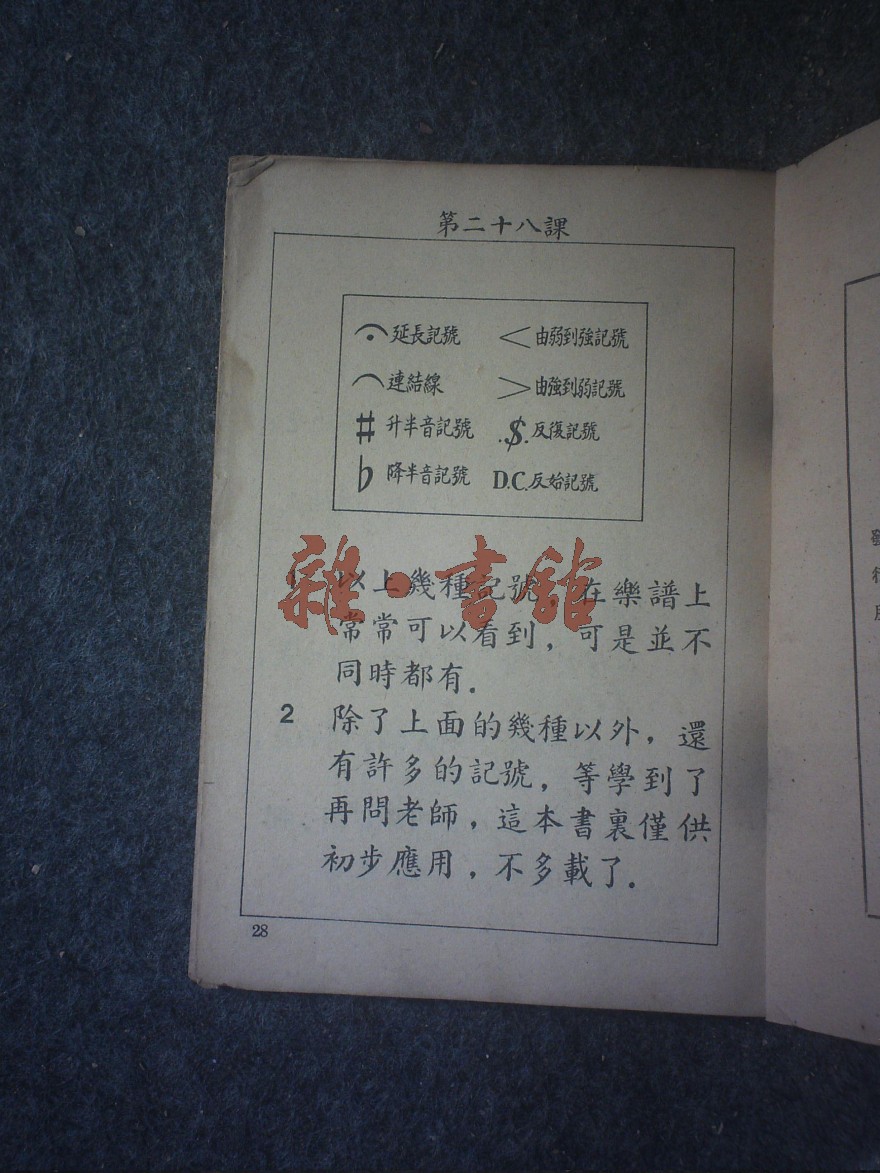 第二十八課
延長記號 < 由弱到強記號
連結線 > 由強到弱記號
♯ 升半音記號 .$. 反復記號
♭ 降半音記號 D.C. 反始記號
雜·書館
以上幾種記號，在樂譜上
常常可以看到，可是並不
同時都有．
2 除了上面的幾種以外，還
有許多的記號，等學到了
再問老師，這本書裏僅供
初步應用，不多載了．
28